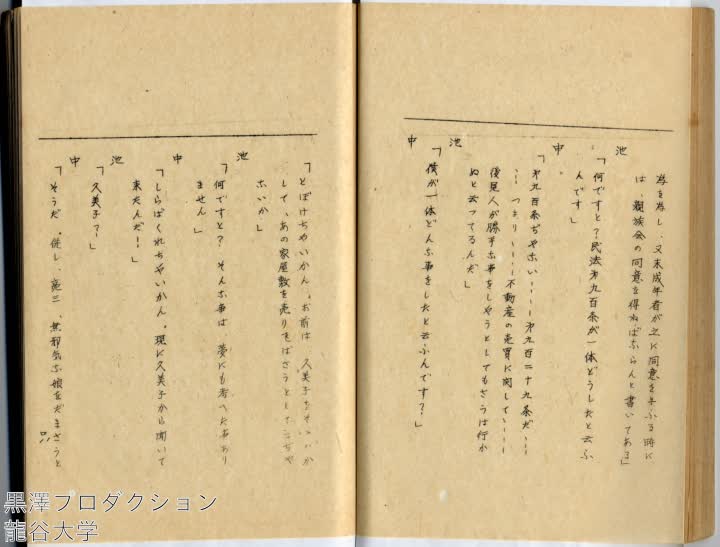 為を為し、又未成年者が之に同意を与ふる時に
は、親族会の同意を得ねばならんと書いてある」
池
「何ですと?民法才九百条が一体どうしたと云ふ
んです」
中
「才九百条ぢやない……才九百二十九条だ……
……つまり……不動産の売買に関して……
後見人が勝手な事をしやうとしてもさうは行か
ぬと云つてるんだ」
池
「僕が一体どんな事をしたと云ふんです?」
中
「とぼけちやいかん。お前は、久美子をそゝのか
して、あの家屋敷を売りとばさうとしてゐぢや
ないか」
池
「何ですと? そんな事は 夢にも考へた事あり
ません」
中
「しらばくれちやいかん。現に久美子から聞いて
来たんだ!」
池
「久美子?」
中
「そうだ。併し、憲三、無邪気な娘をだまさうと
黒澤プロダクション
龍谷大学